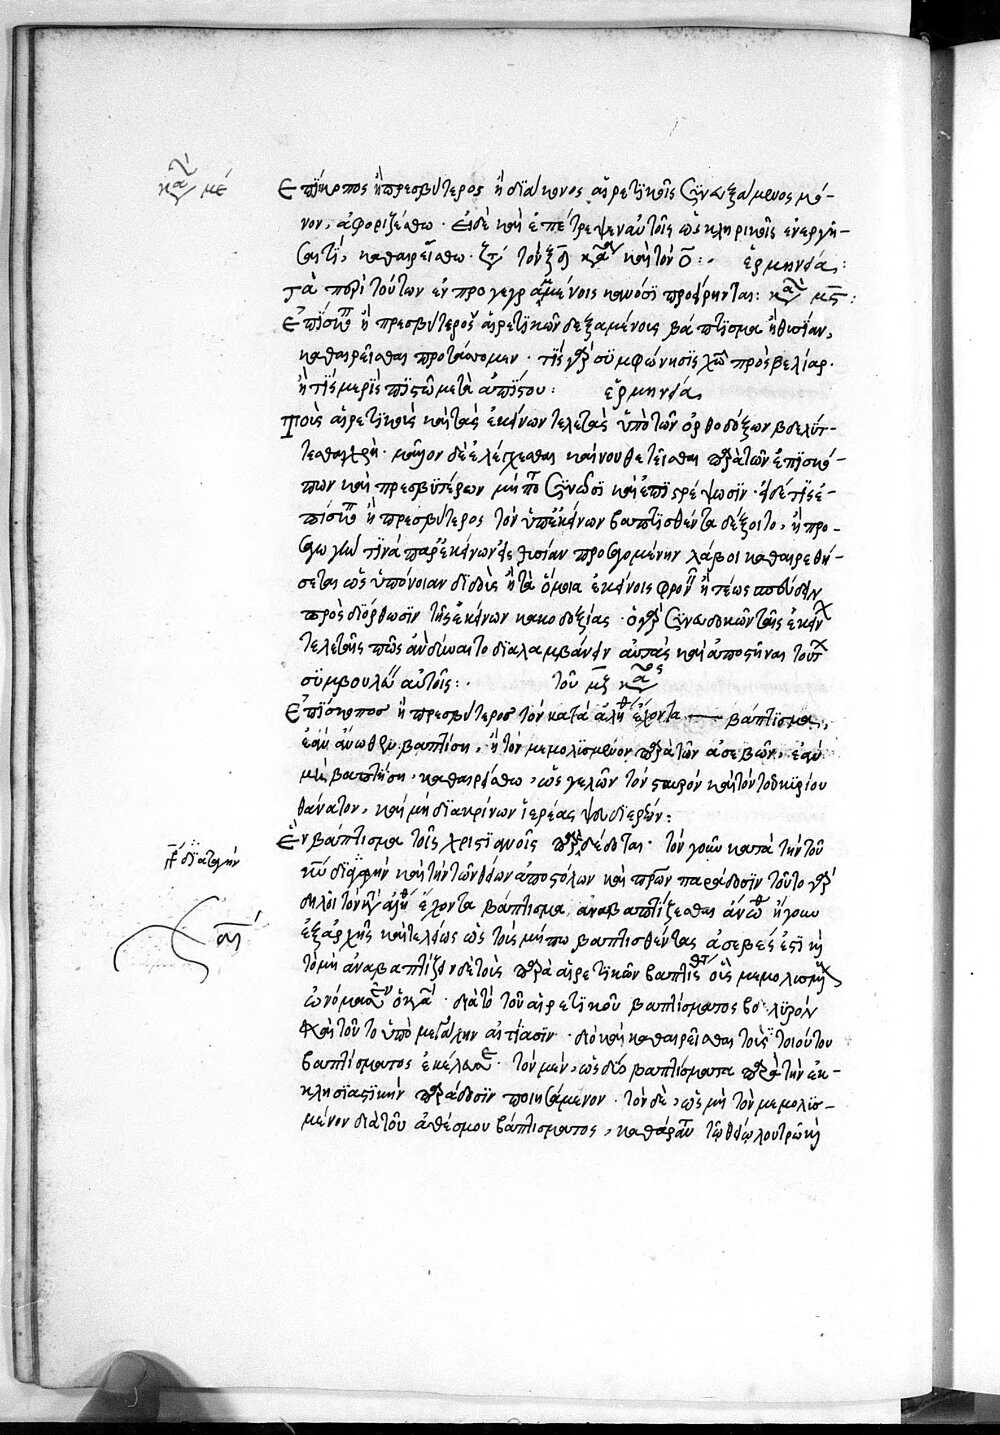 κανὼν με
Ἐπίσκοπος ἢ πρεσβύτερος ἢ διάκονος αἱρετικοῖς συνευξάμενος μό-
νον, ἀφοριζέσθω · εἰ δὲ καὶ ἐπέτρεψεν αὐτοῖς ὡς κληρικοῖς ἐνεργῆ-
σαί τι, καθαιρείσθω. τὸν καὶ τὸν ο: ἑρμηνεία:
τὰ περὶ τούτων ἐν προγεγραμμένοις κανόσι προείρηνται: κανὼν μς:
Ἐπίσκοπον ἢ πρεσβύτερον αἱρετικῶν δεξαμένους βάπτισμα ἢ θυσίαν,
καθαιρεῖσθαι προστάσσομεν · τίς γὰρ συμφώνησις χῶ πρὸς βελίαρ ·
ἢ τίς μερὶς πιστῶ μετὰ ἀπίστου: ἑρμηνεία
τοὺς αἱρετικοὺς καὶ τὰς ἐκείνων τελετὰς ὑπὸ τῶν ὀρθοδόξων βδελύτ-
τεσθαι χρὴ · μᾶλλον δὲ ἐλέγχεσθαι καὶ νουθετεῖσθαι παρὰ τῶν ἐπισκό-
πων καὶ πρεσβυτέρων μήπω συνῶσι καὶ ἐπιστρέψωσιν · εἰ δέ τις ἐ-
πίσκοπος ἢ πρεσβύτερος τὸν ὑπ' ἐκείνων βαπτισθέντα δέξοιτο, ἢ προ-
σαγωγήν τινὰ παρ' ἐκείνων εἰς θυσίαν προσαγομένην λάβοι καθαιρεθή-
σεται ὡς ὑπόνοιαν διδοὺς ἢ τὰ ὅμοια ἐκείνοις φρονεῖν ἢ τέως σπεύδειν
πρὸς διόρθωσιν τῆς ἐκείνων κακοδοξίας · ὁ γὰρ συνευδοκῶν ταῖς ἐκείνων
τελεταῖς πῶς ἂν δύναιτο διαλαμβάνειν αὐτὰς καὶ ἀποστῆναι τούτων
συμβουλεύειν αὐτοῖς: τοῦ μζ κανόνος
Ἐπίσκοπος ἢ πρεσβύτερος τὸν κατὰ ἀλήθειαν ἔχοντα — βάπτισμα,
ἐὰν ἄνωθεν βαπτίση, ἢ τὸν μεμολυσμένον παρὰ τῶν ἀσεβῶν, ἐὰν
μὴ βαπτήση, καθαιρείσθω, ὡς γελῶν τὸν σταυρὸν καὶ τὸν τοῦ κυρίου
θάνατον, καὶ μὴ διακρίνων ἱερέας ψευδιερέων:
Ἓν βάπτισμα τοῖς χριστιανοῖς παραδέδοται · τὸν γοῦν κατὰ τὴν τοῦ
κυ διαταγὴν καὶ τὴν τῶν θείων ἀποστόλων καὶ πρων παράδοσιν τοῦτο γὰρ
δηλοῖ τὸν κατ' ἀλήθειαν ἔχοντα βάπτισμα, ἀναβαπτίζεσθαι ἄνωθεν ἤγουν
ἐξ ἀρχῆς καὶ τελείως ὡς τοὺς μήπω βαπτισθέντας ἀσεβές ἐστι καὶ
τὸ μὴ ἀναβαπτίζειν δὲ τοὺς παρὰ αἱρετικῶν βαπτισθέντας οὓς μεμολυσμένους
ὠνόμασεν ὁ κανών · διὰ τὸ τοῦ αἱρετικοῦ βαπτίσματος βδελυρὸν
καὶ τοῦτο ὑπὸ μεγάλην αἰτίασιν · διὸ καὶ καθαιρεῖσθαι τοὺς τοιούτου
βαπτίσματος ἐκέλευσε · τὸν μὲν, ὡς δύο βαπτίσματα παρὰ τὴν ἐκ-
κλησιαστικὴν παράδοσιν ποιησάμενον · τὸν δὲ, ὡς μὴ τὸν μεμολυσ-
μένον διὰ τοῦ ἀθέσμου βαπτίσματος, καθάραντα τῶ θείω λουτρῶ καὶ
διαταγὴν